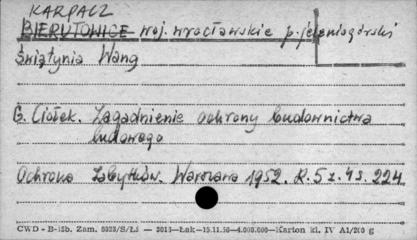 KARPACZ
BIERUTOWICE woj. wrocławskie p. jeleniogórski
Świątynia Wang
G. Ciołek. Zagadnienie ochrony budownictwa
ludowego
Ochrona Zabytków. Warszawa 1952. R. 5 z. 4 s. 224
CWD - B-15b. Zam. 5023/S/Łi — 3013—Łak—15.11.56—4.000.000—Karton kl. IV A1/200 g